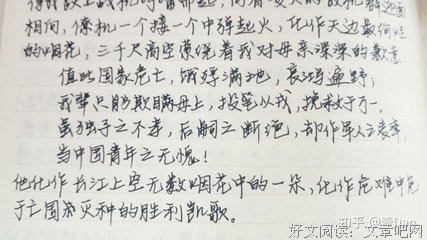 相向，僚机一个接一个中弹起火，化作天边最绚烂
的烟花，三千尺高空萦绕着我对母亲深深的歉意
值此国家危亡，饿殍满地，哀鸿遍野，
我辈只能欺瞒母上，投笔从戎，挽救于万一，
虽独子之不孝，后嗣之断绝，却作军人之表率，
当中国青年之无愧！
他化作长江上空无数烟花中的一朵，化作危难中免
于亡国灭种的胜利凯歌。
知乎
好文阅读：文章吧网